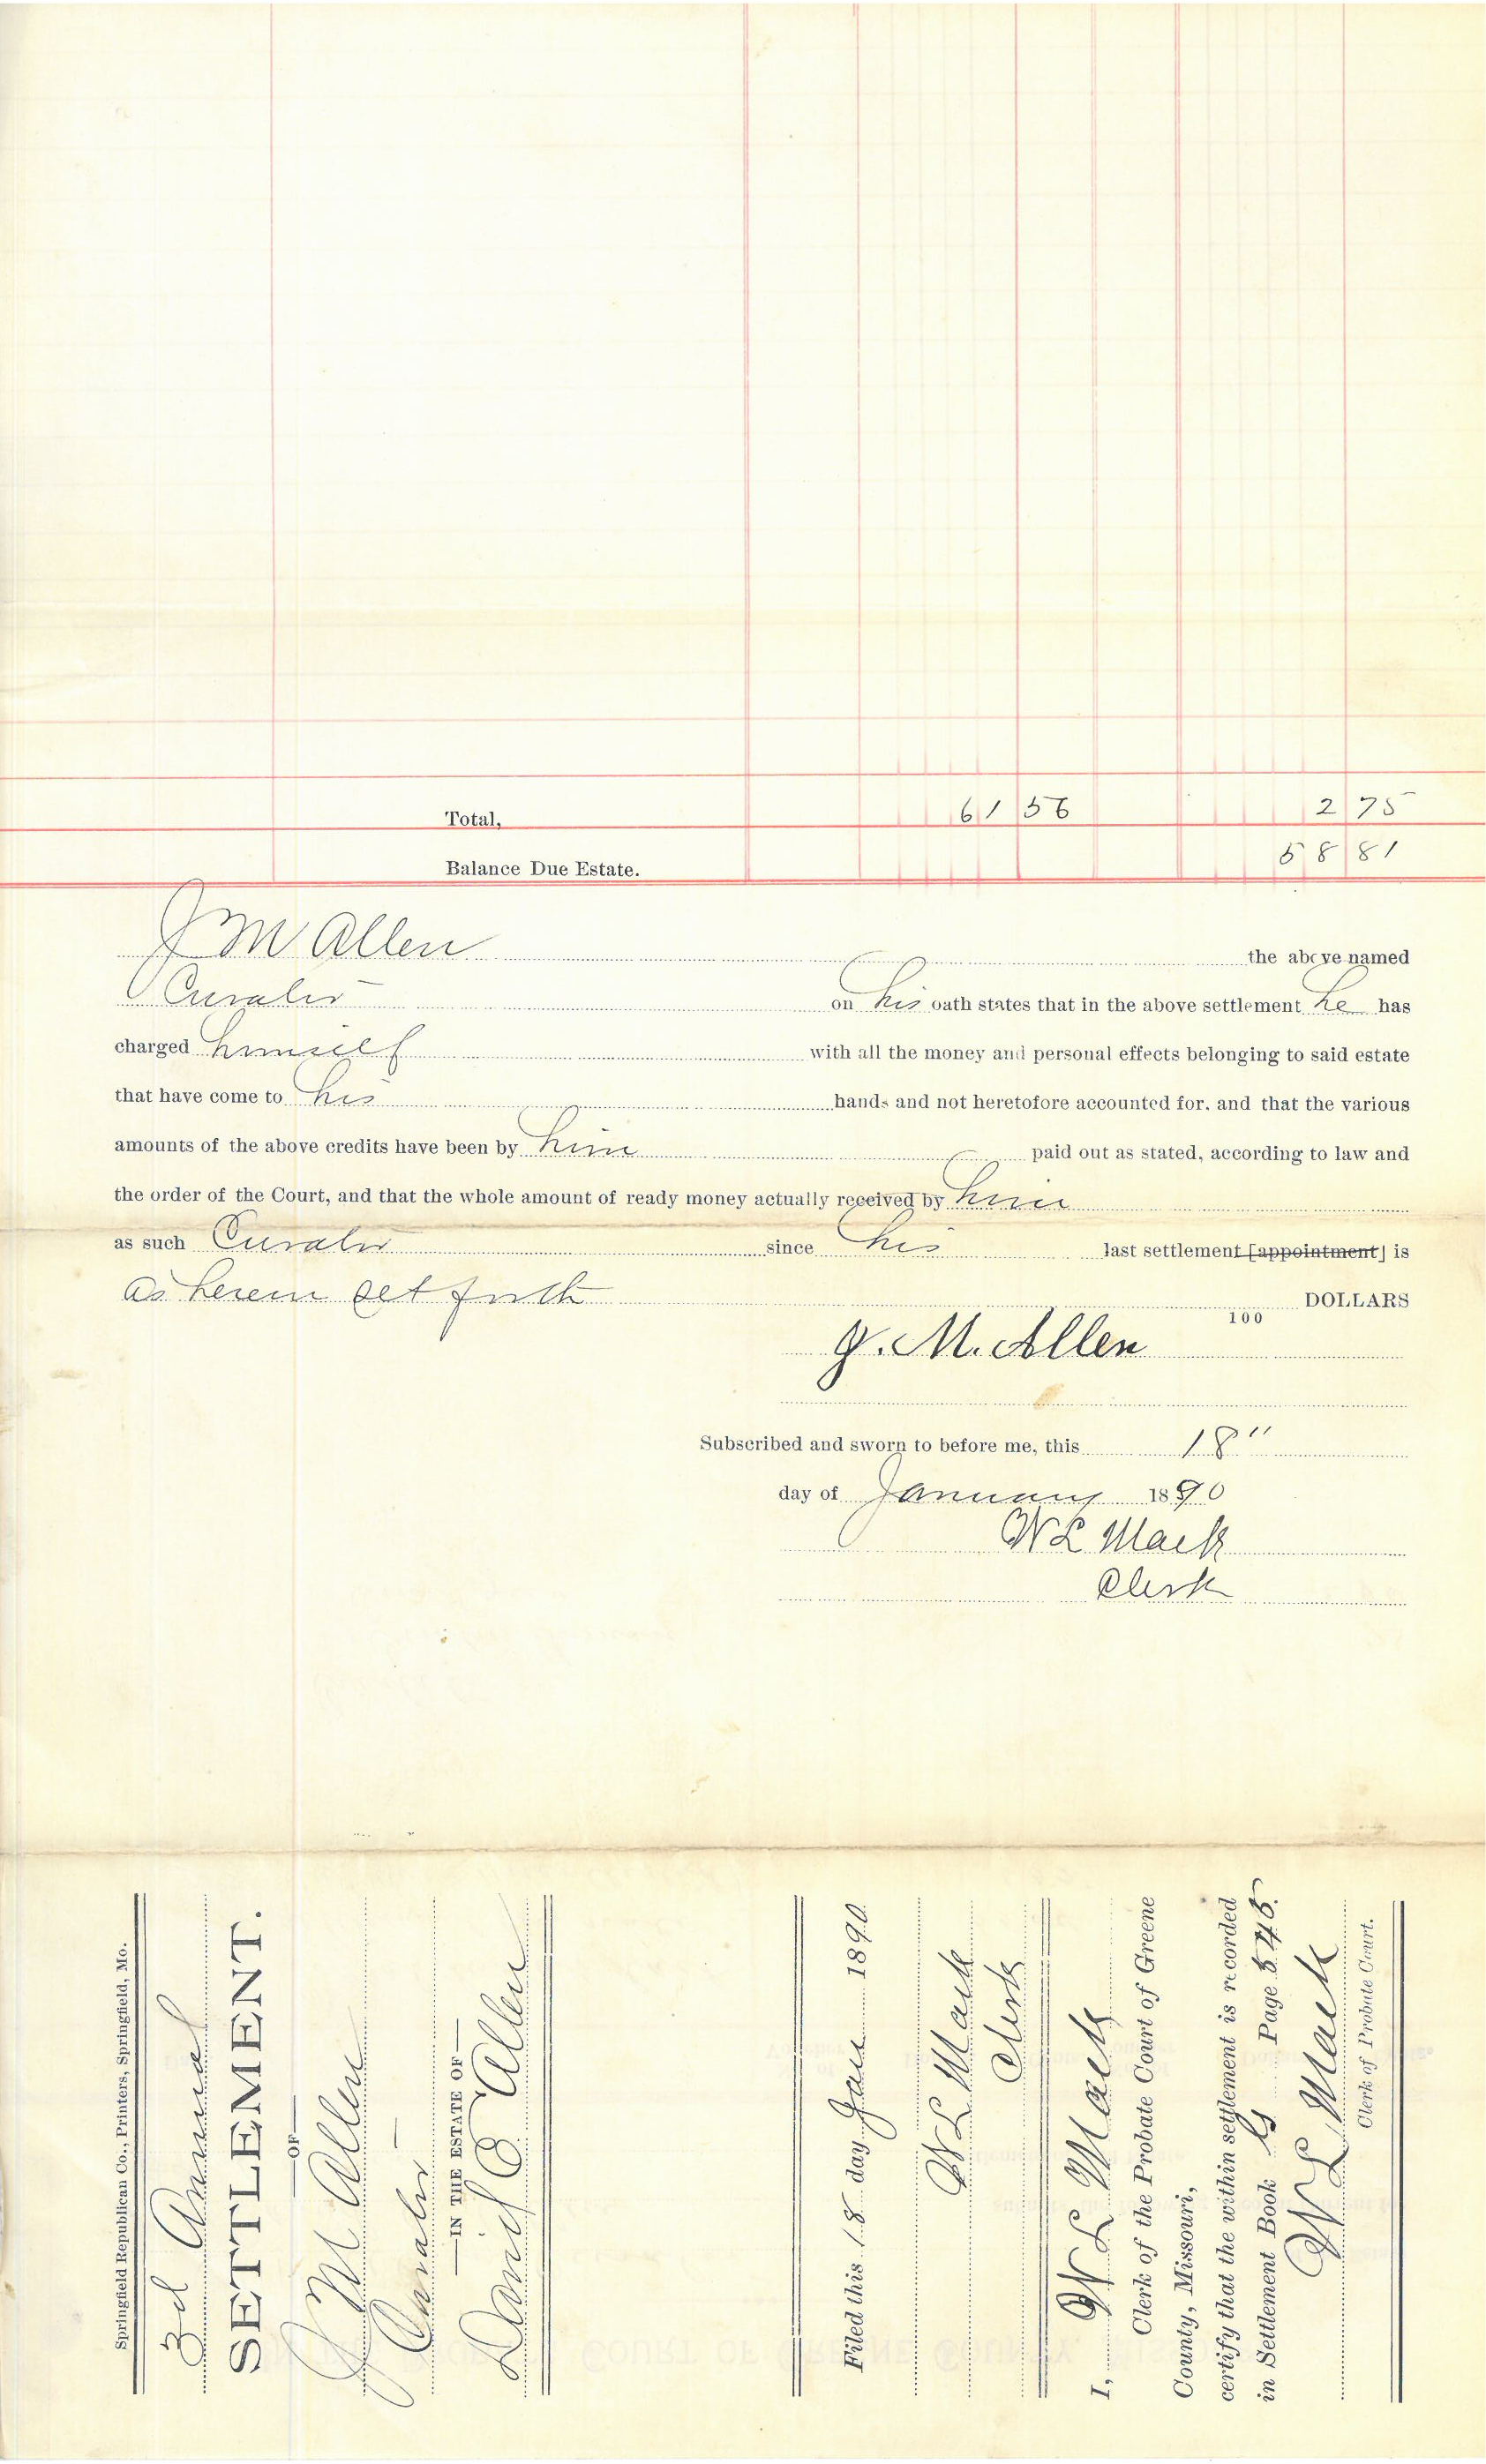 Total, 61 56 2 75
Balance Due Estate. 58 81
J M Allen the above named
Curator on his oath states that in the above settlement he has
charged himself with all the money and personal effects belonging to said estate
that have come to his hands and not heretofore accounted for, and that the various
amounts of the above credits have been by him paid out as stated, according to law and
the order of the Court, and that the whole amount of ready money actually received by him
as such Curator since his last settlement [appointment] is
as herein set forth DOLLARS
100
J. M. Allen
Subscribed and sworn to before me, this 18"
day of January 1890
W L Mack
Clerk
Springfield Republican Co., Printers, Springfield, Mo.
3d Annual
SETTLEMENT.
OF
J M Allen
Curator
IN THE ESTATE OF
E Allen
Filed this 18 day Jan 1890
W L Mack
Clerk
I, W L Mack
Clerk of the Probate Court of Greene
County, Missouri,
certify that the within settlement is recorded
in Settlement Book Page 545.
W L Mack
Clerk of Probate Court.